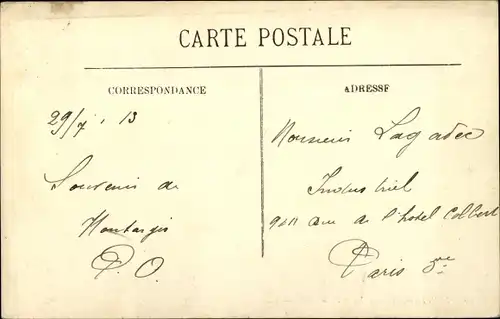 CARTE POSTALE
CORRESPONDANCE
ADRESSE
29/7 . 13
Souvenir de
Montargis
P.O.
Monsieur Lagadec
Industriel
rue de l'hotel Colbert
Paris